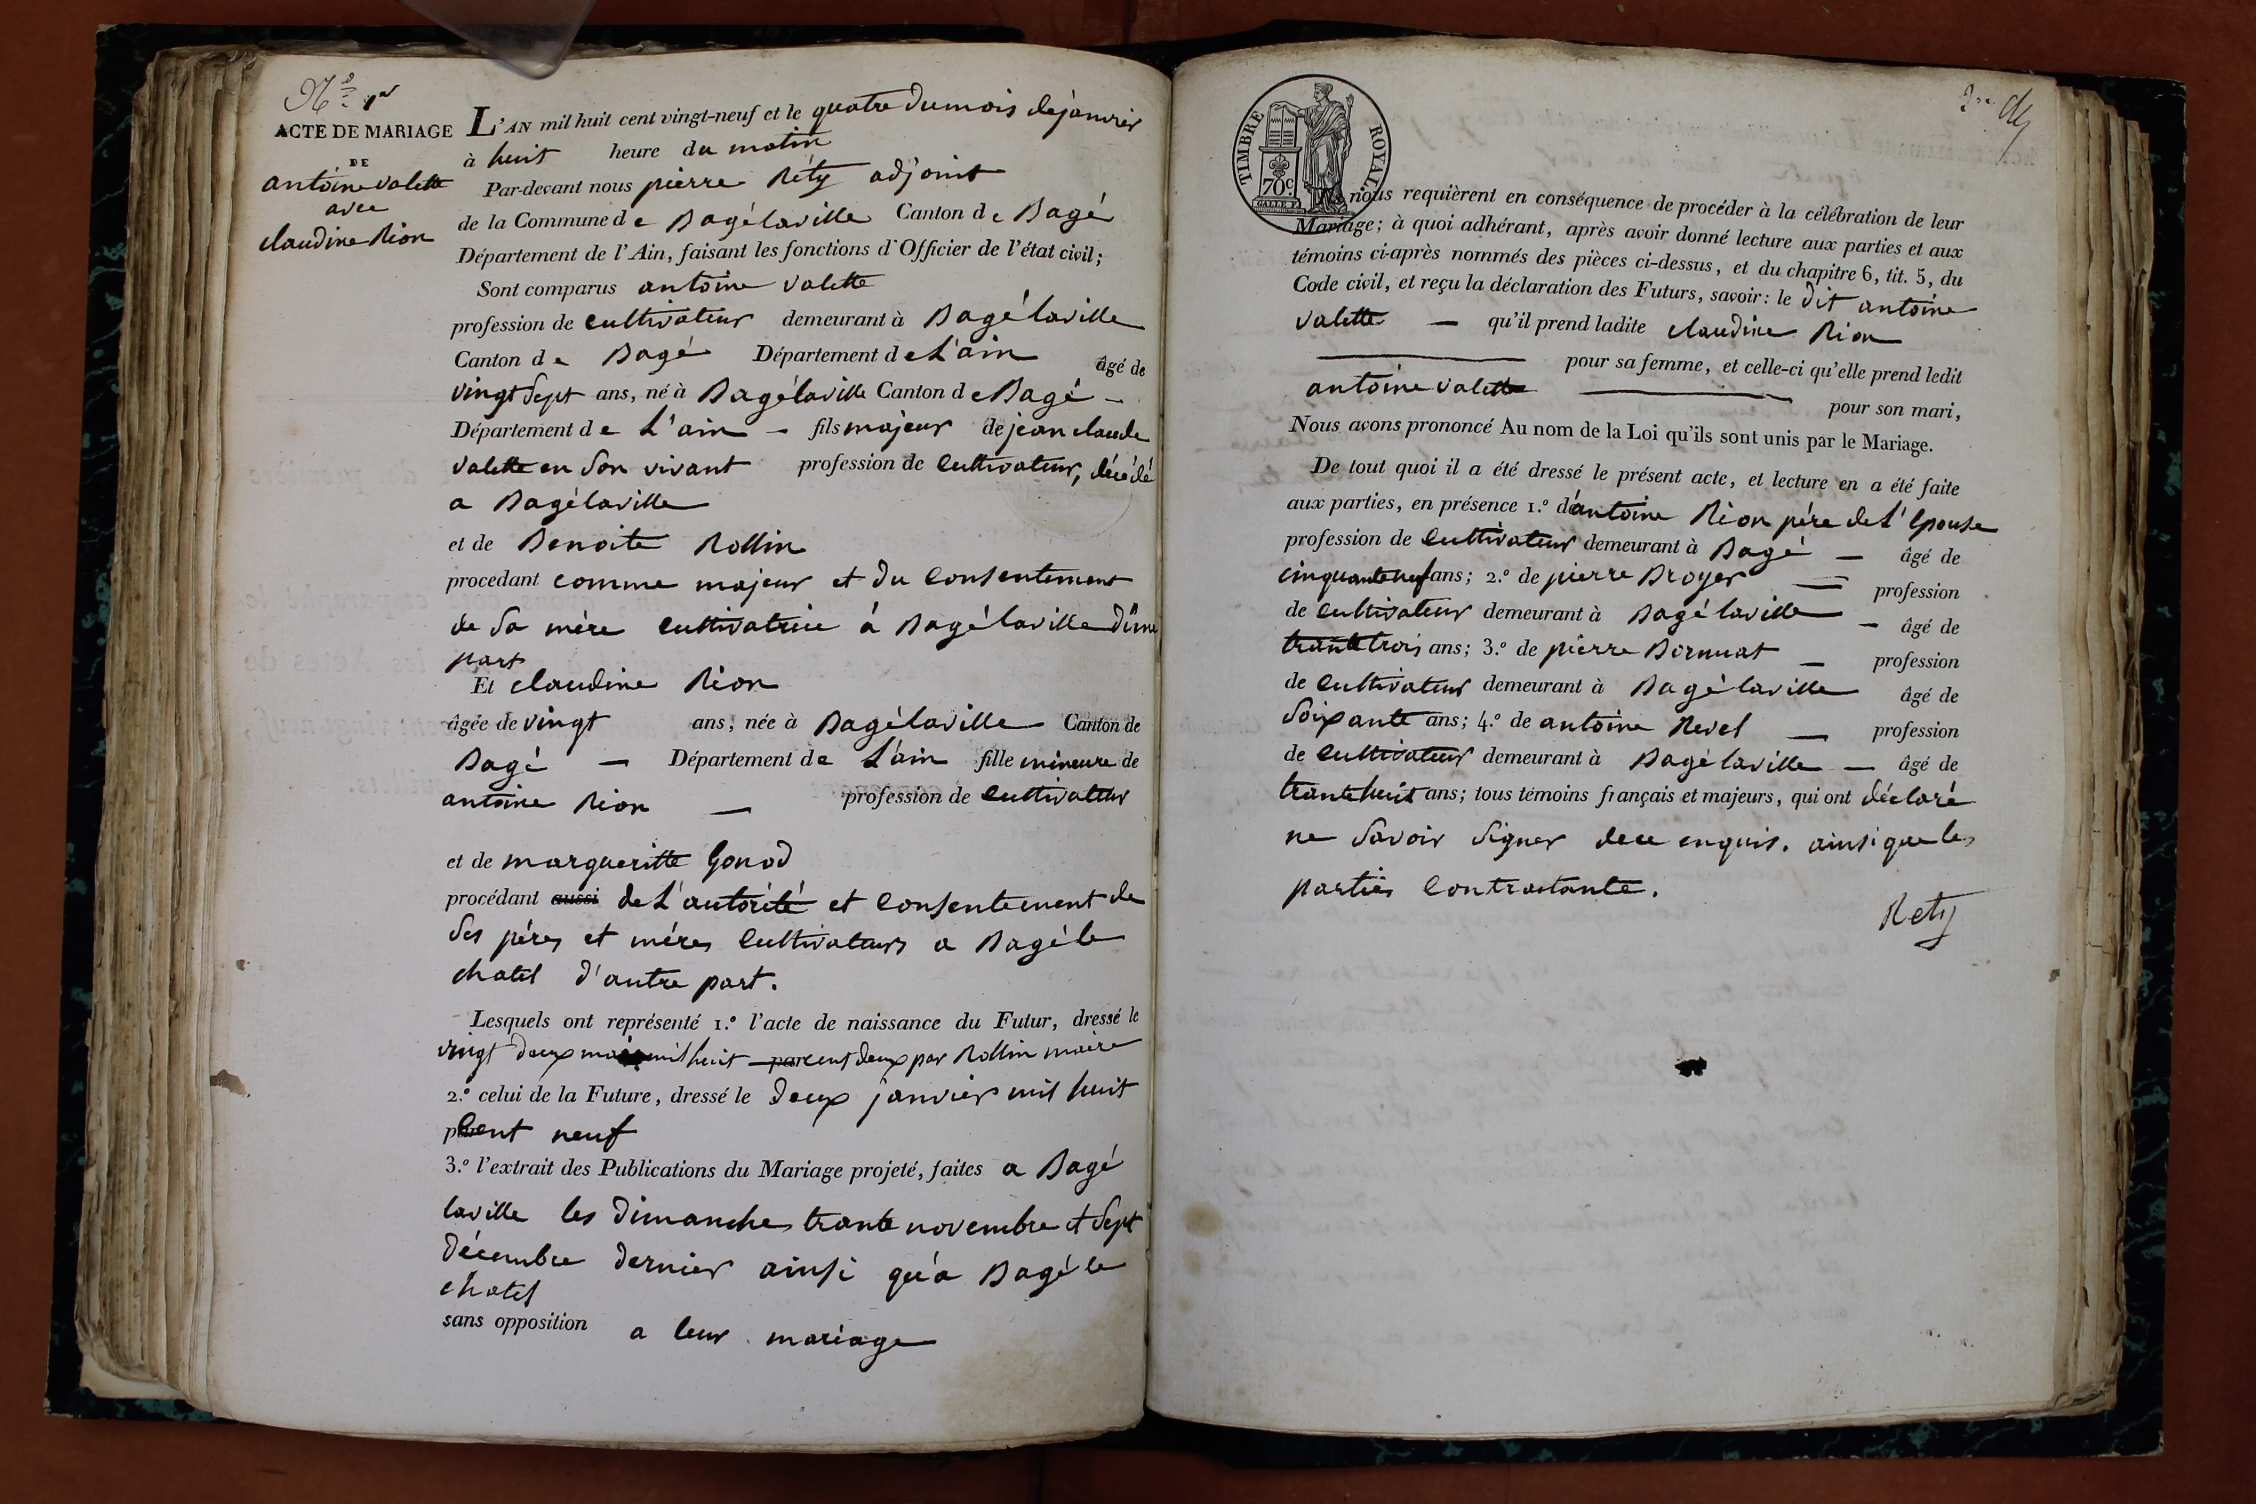 N.º 1er
ACTE DE MARIAGE
DE
antoine valette
avec
claudine Rion
L'AN mil huit cent vingt-neuf et le quatre du mois de janvier
à huit heure du matin
Par-devant nous pierre Réty adjoint
de la Commune de Bagélaville Canton de Bagé
Département de l'Ain, faisant les fonctions d'Officier de l'état civil;
Sont comparus antoine valette
profession de cultivateur demeurant à Bagélaville
Canton de Bagé Département de L'ain âgé de
vingt Sept ans, né à Bagélaville Canton de Bagé -
Département de L'ain - fils majeur de jean claude
valette en Son vivant profession de cultivateur, décédé
a Bagélaville
et de Benoite Rollin
procedant comme majeur et du consentement
de Sa mère cultivatrice à Bagélaville d'une
part
Et claudine Rion
âgée de vingt ans, née à Bagélaville Canton de
Bagé — Département de L'ain fille mineure de
antoine Rion — profession de cultivateur
et de margueritte Gonod
procédant aussi de L'autorité et consentement de
Ses pères et mères cultivateurs a Bagé le
chatel d'autre part.
Lesquels ont représenté 1.º l'acte de naissance du Futur, dressé le
vingt deux mil huit par cent deux par Rollin maire
2.º celui de la Future, dressé le deux janvier mil huit
par cent neuf
3.º l'extrait des Publications du Mariage projeté, faites a Bagé
laville les dimanches trante novembre et Sept
décembre dernier ainsi qu'a Bagé le
chatel
sans opposition a leur mariage
TIMBRE ROYAL
70 c.
nous requièrent en conséquence de procéder à la célébration de leur
Mariage; à quoi adhérant, après avoir donné lecture aux parties et aux
témoins ci-après nommés des pièces ci-dessus, et du chapitre 6, tit. 5, du
Code civil, et reçu la déclaration des Futurs, savoir: le dit antoine
valette — qu'il prend ladite claudine Rion
pour sa femme, et celle-ci qu'elle prend ledit
antoine valette — pour son mari,
Nous avons prononcé Au nom de la Loi qu'ils sont unis par le Mariage.
De tout quoi il a été dressé le présent acte, et lecture en a été faite
aux parties, en présence 1.º d'antoine Rion père de L'epouse
profession de cultivateur demeurant à Bagé — âgé de
cinquante neuf ans; 2.º de pierre Broyer profession
de cultivateur demeurant à Bagélaville - âgé de
trante trois ans; 3.º de pierre — profession
de cultivateur demeurant à Bagélaville âgé de
Soixante ans; 4.º de antoine Revel — profession
de cultivateur demeurant à Bagélaville — âgé de
trante huit ans; tous témoins français et majeurs, qui ont déclaré
ne Savoir Signer de ce enquis. ainsi que les
parties contractante.
Rety